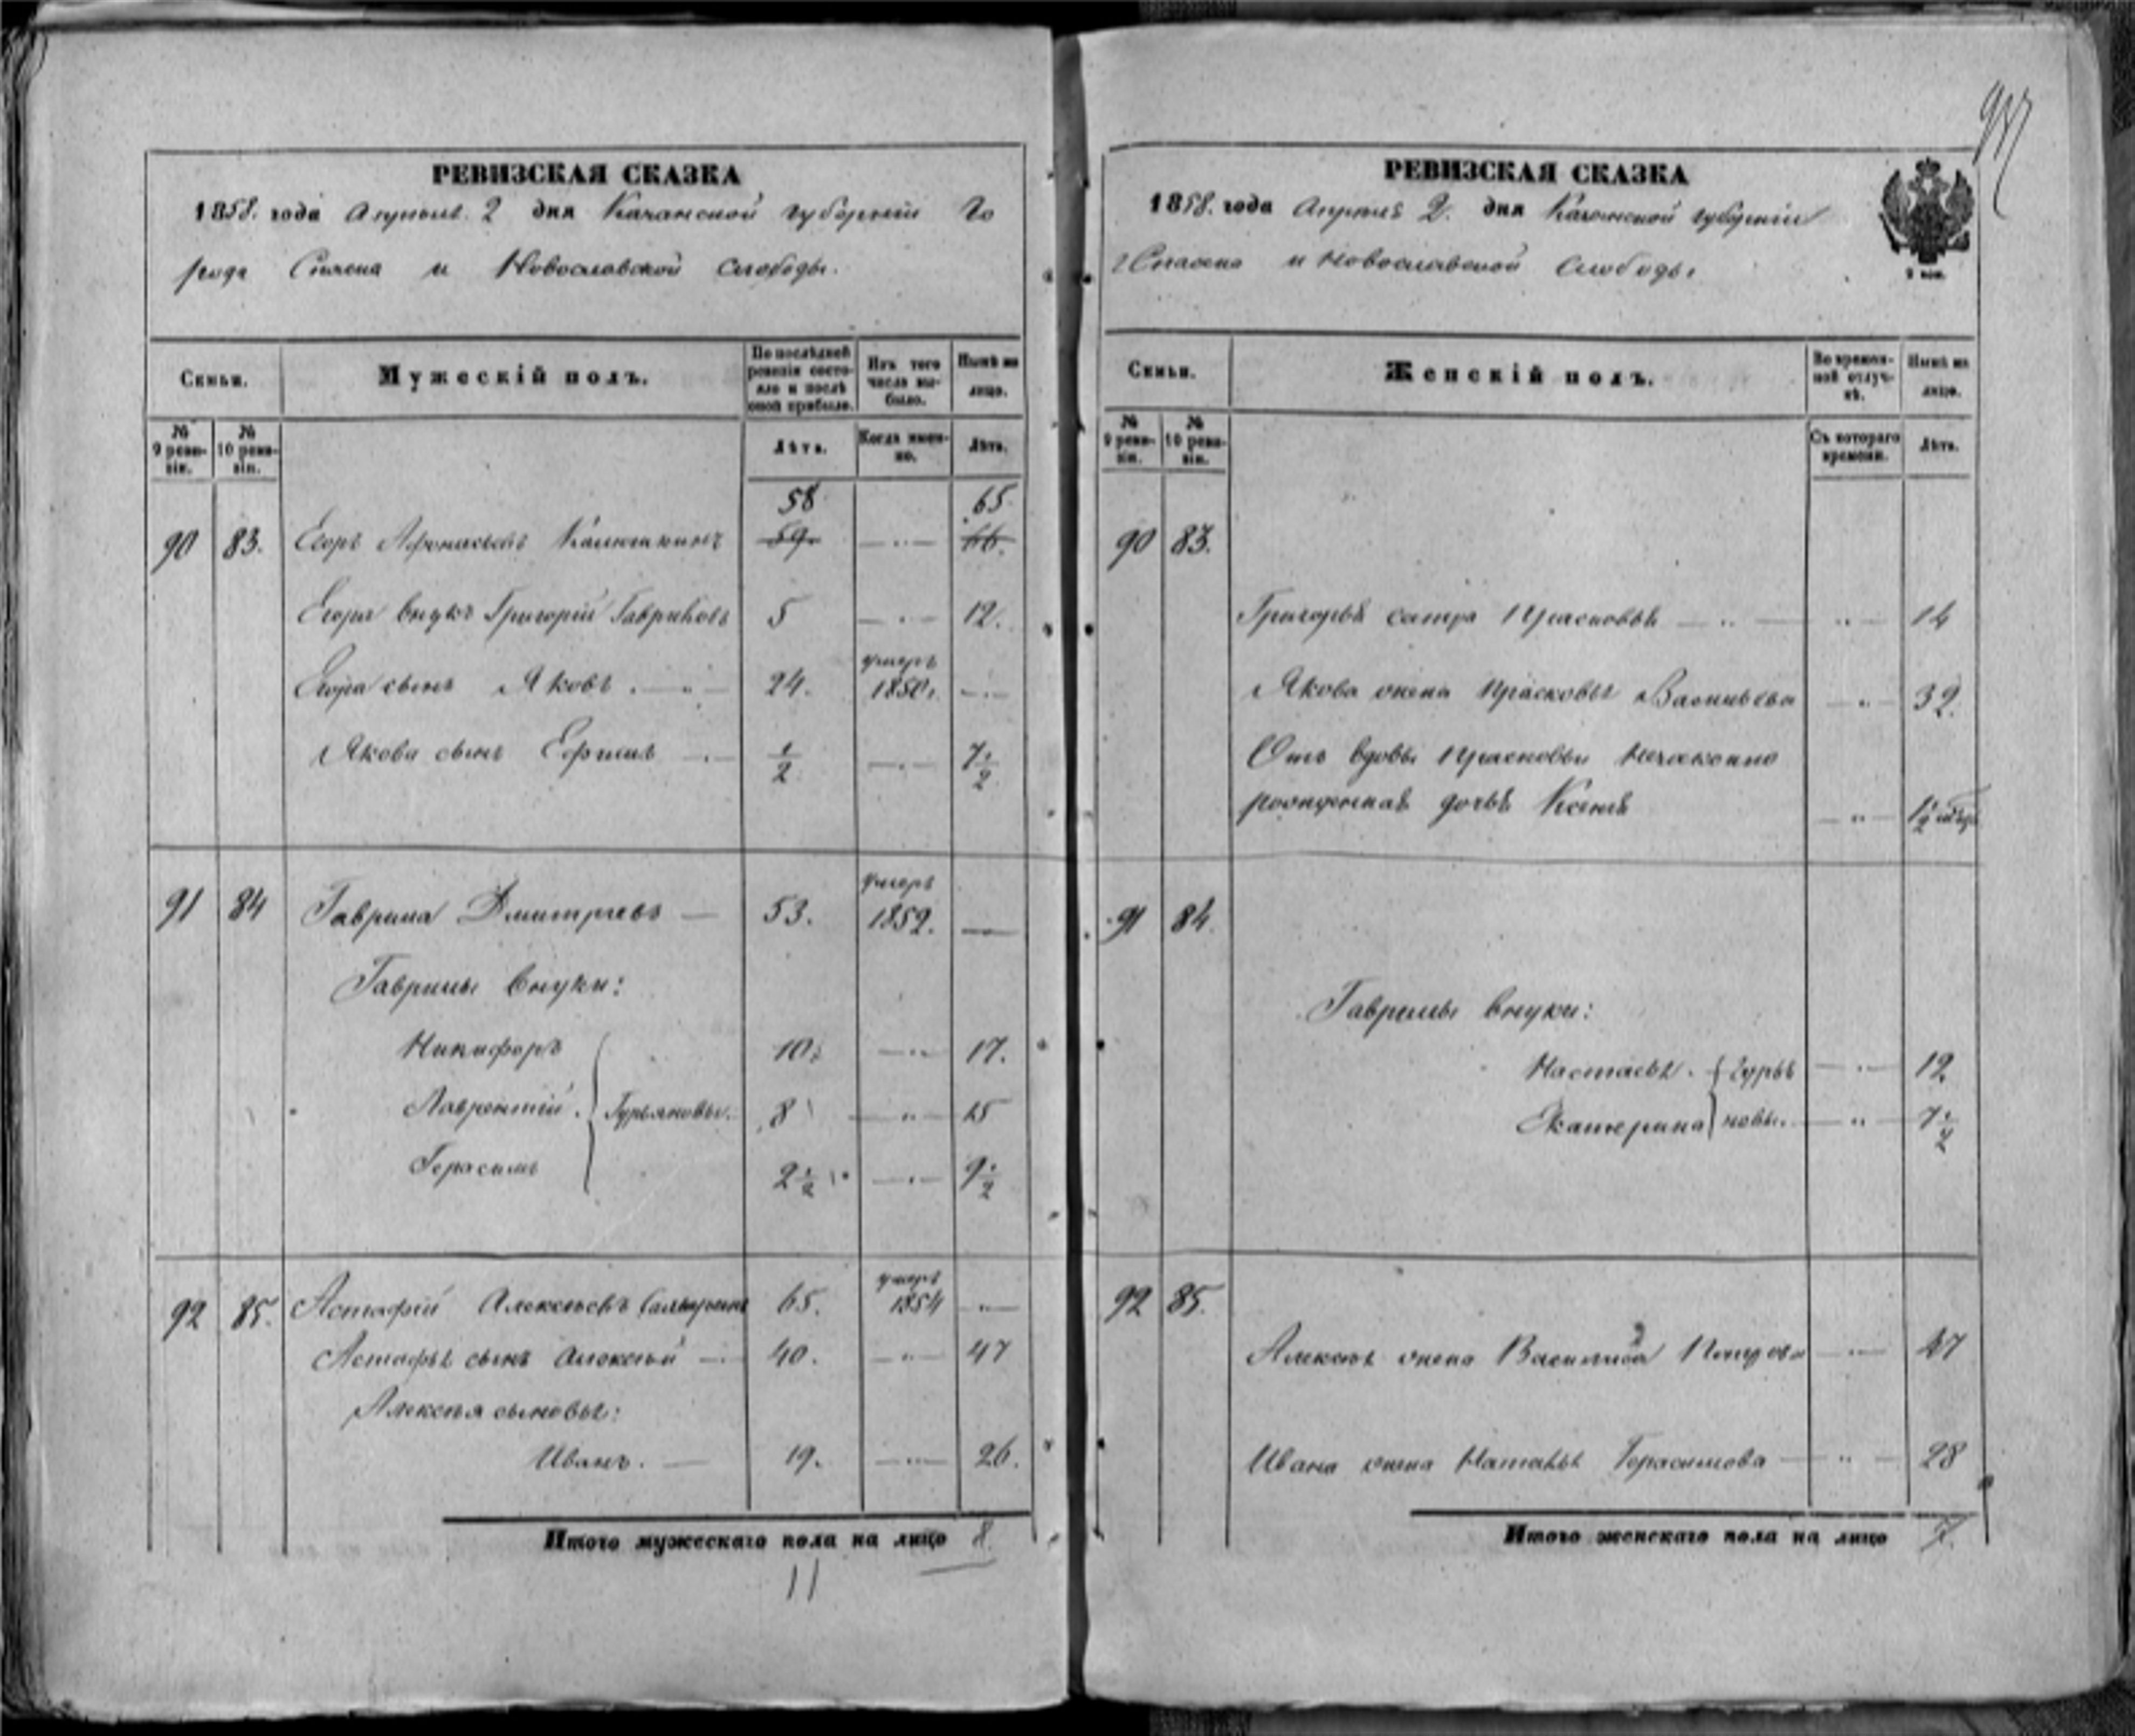 РЕВИЗСКАЯ СКАЗКА
1858. года Апреля 2 дня Казанской губернии Го
рода Спаска и Новославской слободы.
Семьи. Мужескій полъ. По послѣдней ревизіи состояло и послѣ оной прибыло. Изъ того числа выбыло. Нынѣ на лицо.
№ 9 ревизіи. № 10 ревизіи. Лѣта. Когда именно. Лѣта.
58 65
90 83. Егоръ Афонасьевъ 59. 66.
Егора внукъ Григорій Гавриловъ 5 12.
умеръ
Егора сынъ Яковъ. 24. 1850г.
Якова сынъ Ефимъ 1/2 7 1/2
умеръ
91 84 Гаврила Дмитріевъ 53. 1852.
Гаврилы внуки:
Никифоръ 10. 17.
Лаврентій. Гурьяновы. 8 15
Герасимъ 2 1/2 9 1/2
умеръ
92 85. Астафій Алексѣевъ 65. 1854
Астафья сынъ Алексѣй 40. 47
Алексѣя сыновья:
Иванъ. 19. 26.
Итого мужескаго пола на лицо 8
11
РЕВИЗСКАЯ СКАЗКА
1858. года Апреля 2. дня Казанской губерніи
г Спаска и Новославской слободы
2 коп.
Семьи. Женскій полъ. Во временной отлучкѣ. Нынѣ на лицо.
№ 9 ревизіи. № 10 ревизіи. Съ котораго времени. Лѣта.
90 83.
Григорья сестра Прасковья 14
Якова жена Прасковья Васильева 32.
Отъ вдовы Прасковьи незаконно
рожденная дочь Ксенія 1/2
91 84.
Гаврилы внуки:
Настасья. Гурья 12
Екатерина новы. 7 1/2
92 85.
Алексѣя жена Василиса 47
Ивана жена Наталья Герасимова 28
Итого женскаго пола на лицо 7.